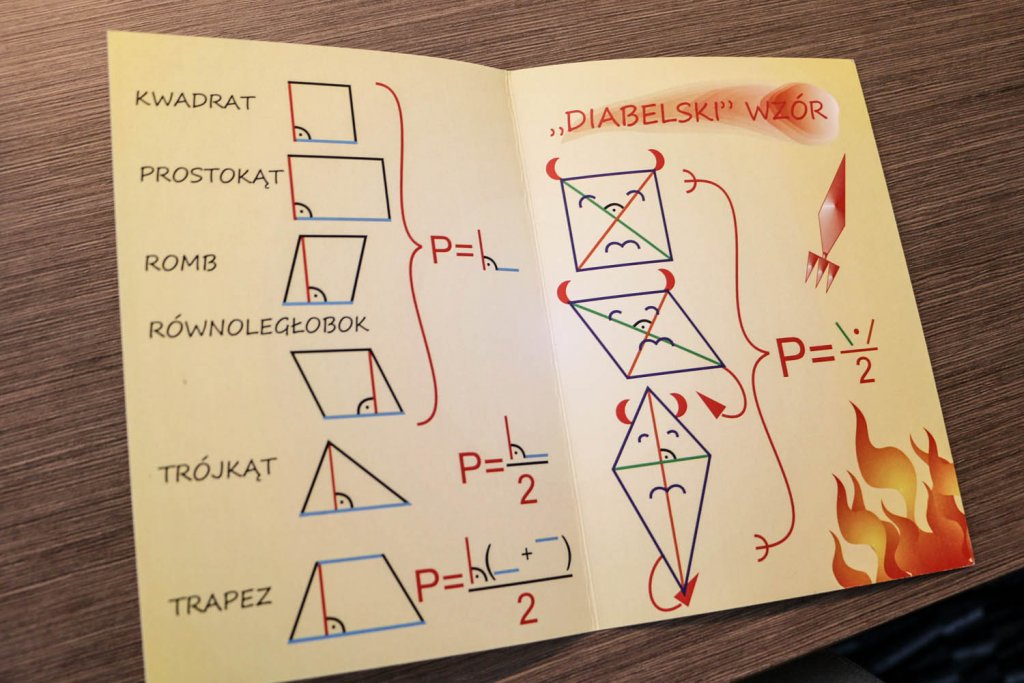 KWADRAT
PROSTOKĄT
ROMB
P=
RÓWNOLEGŁOBOK
TRÓJKĄT
P=
2
TRAPEZ
P= ( + )
2
„DIABELSKI” WZÓR
P= \·/
2